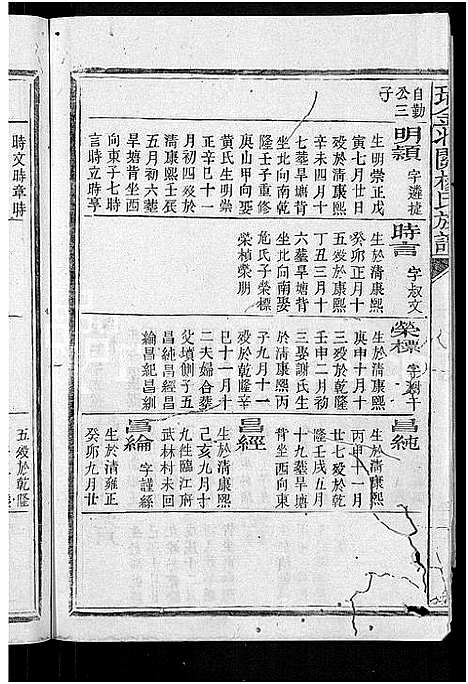 自勤
公三
子
明穎 字遴捷
生明崇正戊
寅七月廿日
歿於清康熙
辛未四月十
七葬旱塘背
坐北向南乾
隆壬子重修
庚山甲向娶
黄氏生明崇
正辛巳十一
月初四歿於
清康熙壬辰
五月初六葬
旱塘背坐西
向東子七時
言時立時亭
時文時章時
時言 字叔文
生於清康熙
癸卯正月十
五歿於康熙
丁丑三月十
六葬旱塘背
坐北向南娶
施氏子榮標
榮楨榮朋
榮標
生於清康熙
庚申十月十
三歿於乾隆
壬申二月初
三娶謝氏生
於清康熙丙
子九月十一
歿於乾隆辛
巳十一月十
二夫婦合葬
父墳側子五
昌純昌經昌
綸昌紀昌紃
昌純
生於清康熙
丙申十一月
廿七歿於乾
隆壬戌五月
十九葬旱塘
背坐西向東
昌經
生於清康熙
己亥九月十
九往臨江府
武林村未回
昌綸 字謹絲
生於清雍正
癸卯九月廿
五歿於乾隆